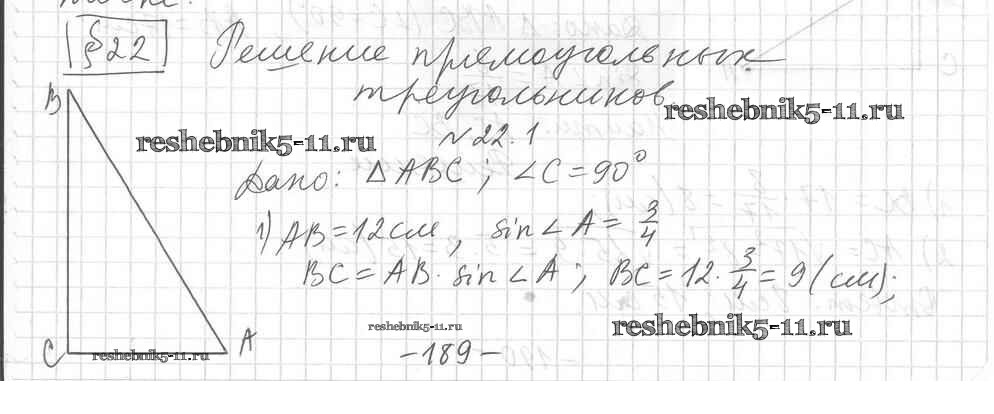 §22 Решение прямоугольных
треугольников
reshebnik5-11.ru
reshebnik5-11.ru
N22.1
B
Дано: △ABC; ∠C=90°
1) AB=12см, sin∠A=3/4
BC=AB·sin∠A; BC=12·3/4=9(см);
reshebnik5-11.ru
reshebnik5-11.ru
C
reshebnik5-11.ru
A
-189-